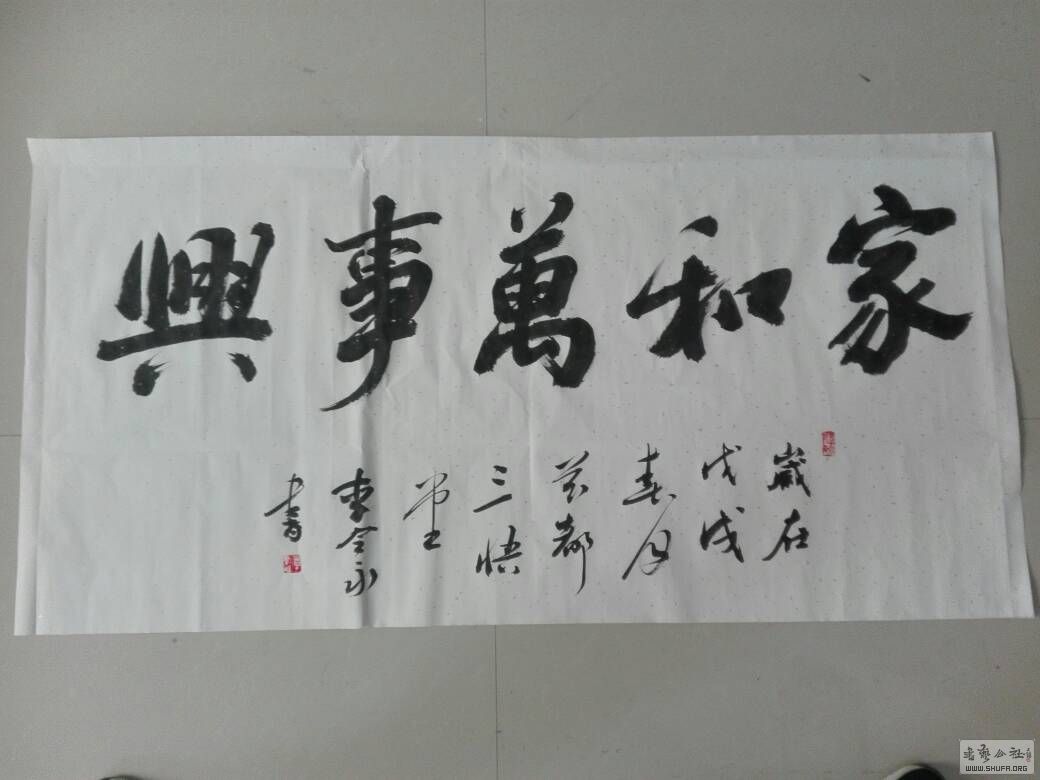 家和萬事興
歲在
戊戌
春月
三悟
堂
李令永
書
書藝公社
WWW.SHUFA.ORG